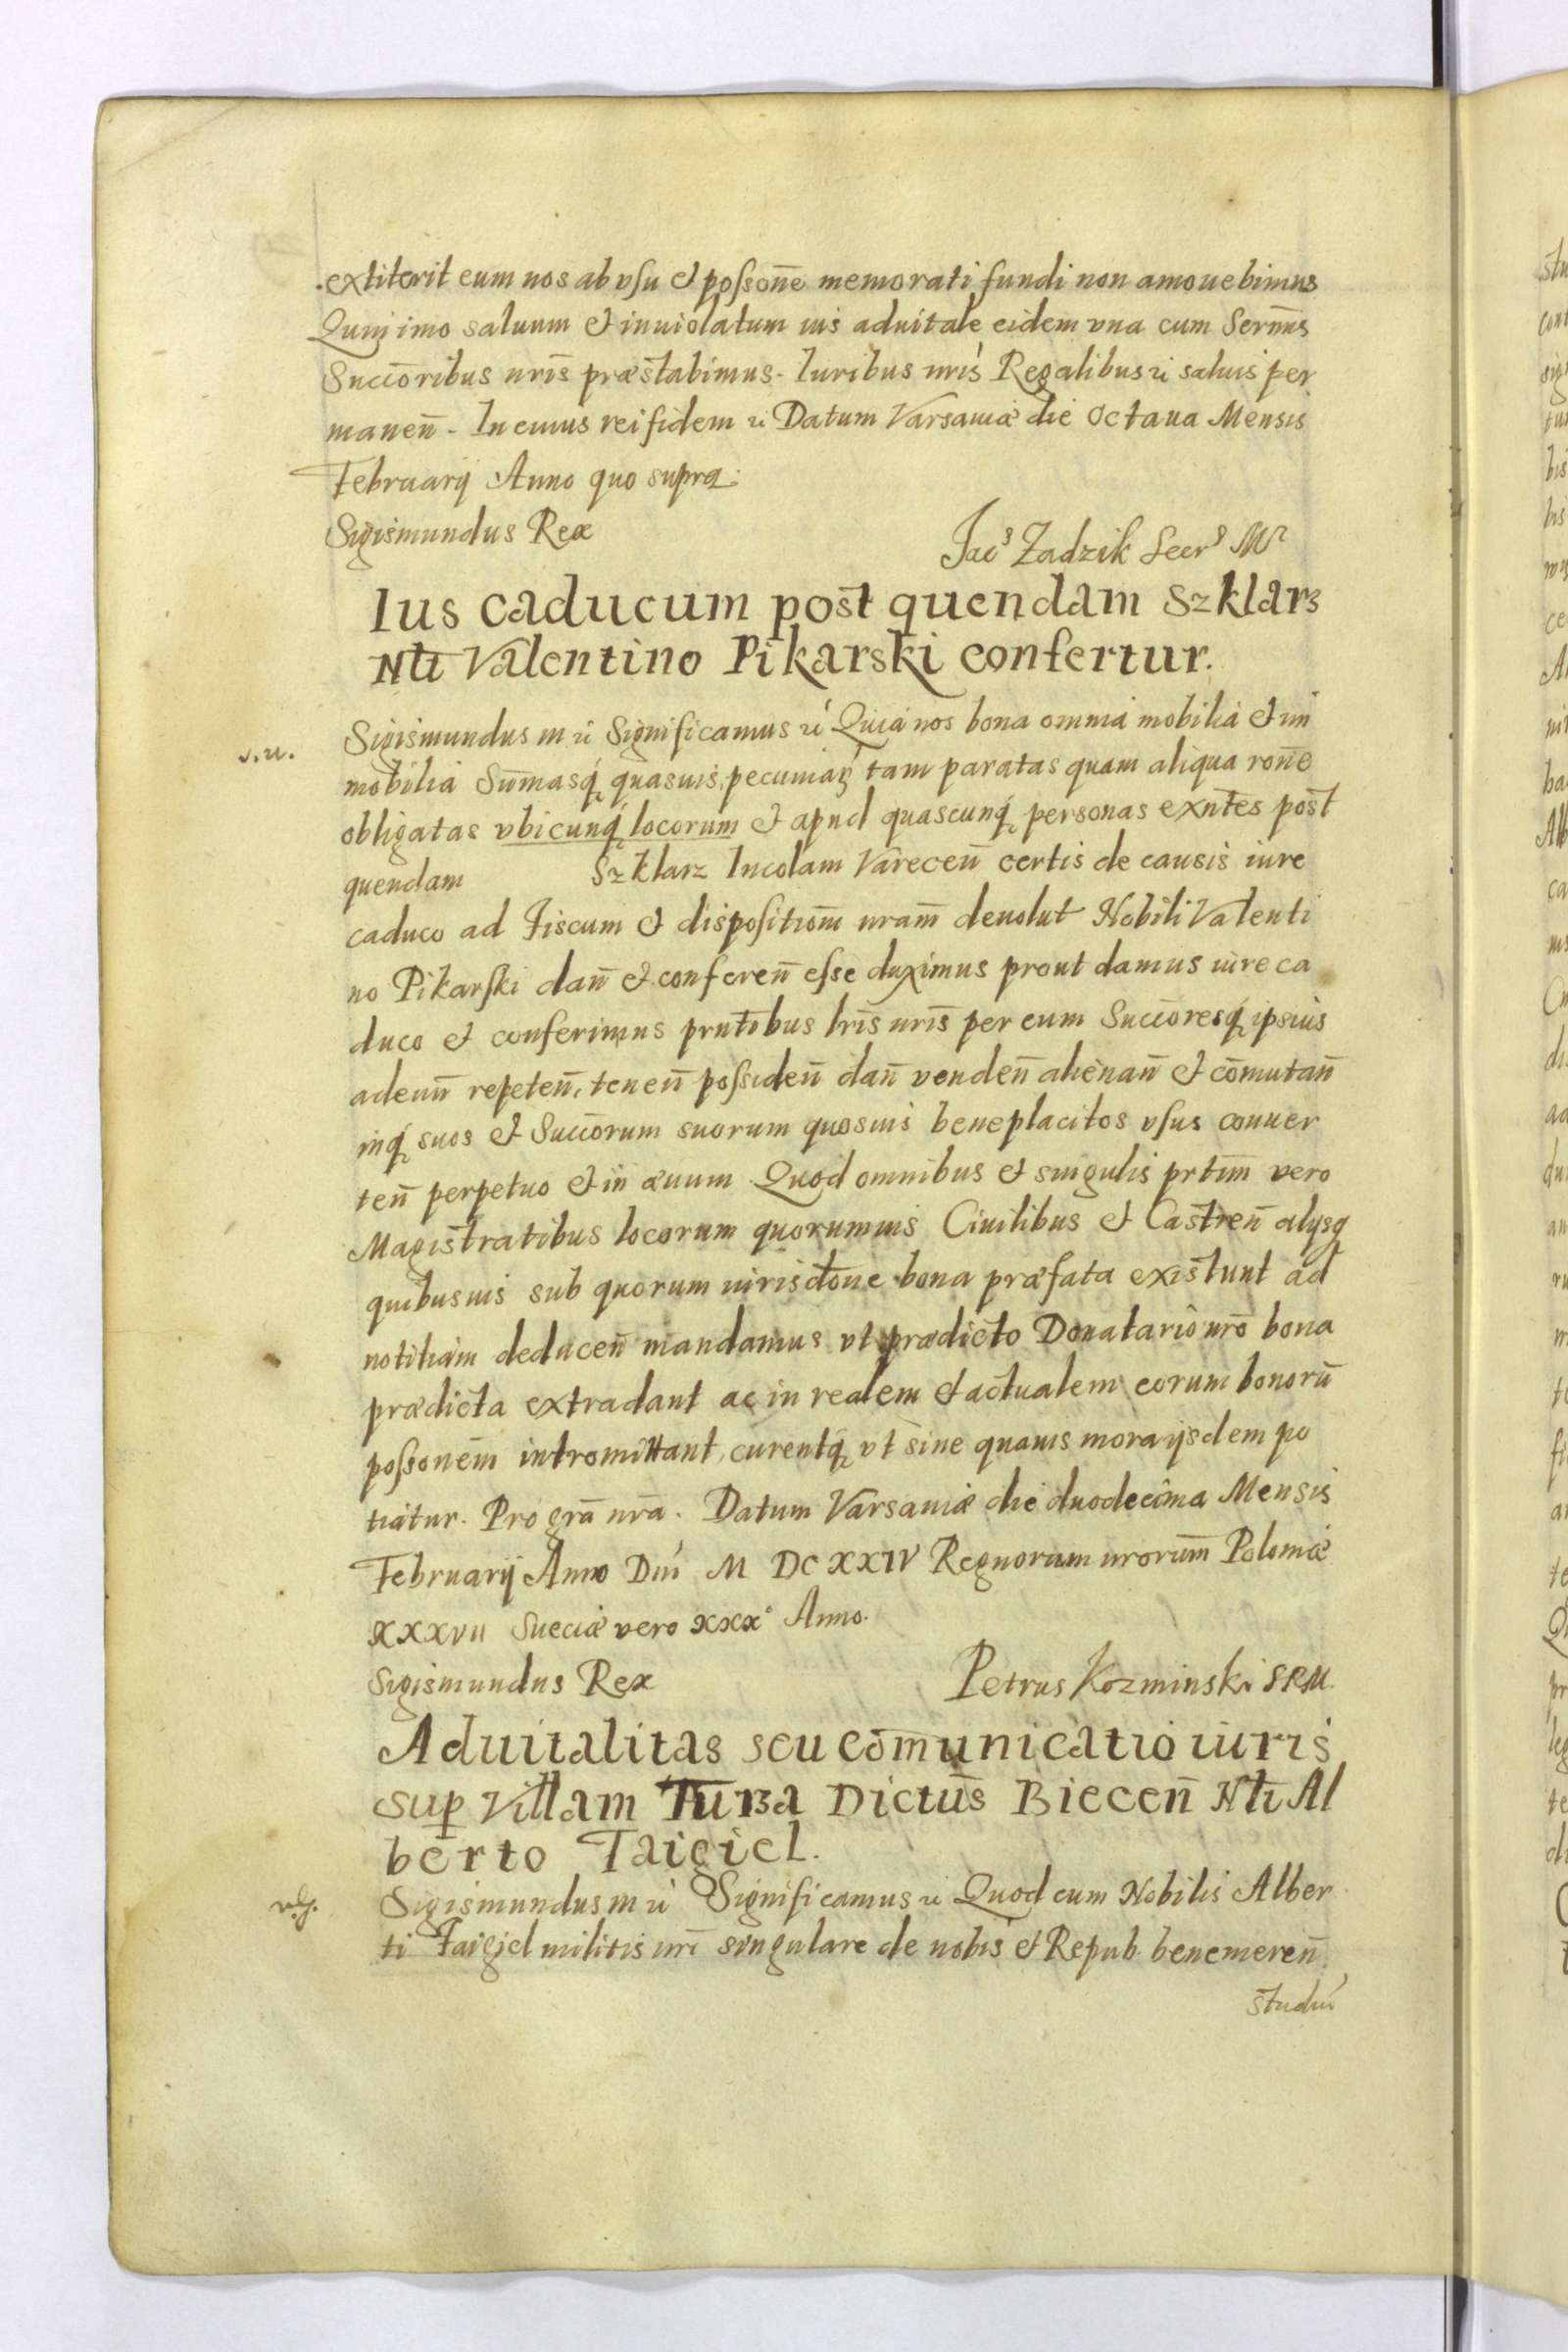 extiterit eum nos ab vsu et possone̅ memorati fundi non amouebimus
Quin imo saluum et inuiolatum ius aduitale eidem vna cum Seren̅us
Succo̅ribus nris̅ præstabimus. Iuribus nris̅ Regalibus ꝛc saluis per
manen̅. In cuius rei fidem ꝛc Datum Varsauiæ die Octaua Mensis
Februarij Anno quo supra.
Sigismundus Rex
Jacs Zadzik Secrs Mr
Ius caducum post quendam Szklarz
Nli̅ Valentino Pikarski confertur.
v.u.
Sigismundus m ꝛc Significamus ꝛc Quia nos bona omnia mobilia et im
mobilia Sum̅asq́ quasuis pecuniarꝫ tam paratas quam aliqua rone̅
obligatas vbicunq́ locorum et apud quascunq́ personas exnte̅s post
quendam Szklarz Incolam Varecen̅ certis de causis iure
caduco ad Fiscum et dispositiom̅ nram̅ deuolut Nobili Valenti
no Pikarski dan̅ et conferen̅ esse duximus prout damus iure ca
duco et conferimus prnti̅bus lris̅ nris̅ per eum Succo̅resq́ ipsius
adeun̅ repeten̅, tenen̅ possiden̅ dan̅ venden̅ alienan̅ et com̅utan̅
inq́ suos et Succo̅rum suorum quosuis beneplacitos vsus conuer
ten̅ perpetuo et in æuum. Quod omnibus et singulis prtim̅ vero
Magistratibus locorum quorumuis Ciuilibus et Castren̅ alijsq
quibusuis sub quorum iurisdto̅ne bona præfata existunt ad
notitiam deducen̅ mandamus vt prædicto Donatario nro̅ bona
prædicta extradant ac in realem et actualem eorum bonoru̅
possone̅m intromittant, curentq́ vt sine quauis mora ijsdem po
tiatur. Pro gra̅ nra̅. Datum Varsauiæ die duodecima Mensis
Februarij Anno Dni̅ M DC XXIV Regnorum nrorum̅ Poloniæ
XXXVII Sueciæ vero XXX° Anno.
Sigismundus Rex
Petrus Kozminski SRM.
Aduitalitas seu com̅unicatio iuris
sup̱ Villam Turza Dictus̅ Biecen̅ Nli̅ Al
berto Faigiel.
Sigismundus m ꝛc Significamus ꝛc Quod cum Nobilis Alber
ti Faigiel militis nri̅ singulare de nobis et Repub. benemeren̅
studiu̅